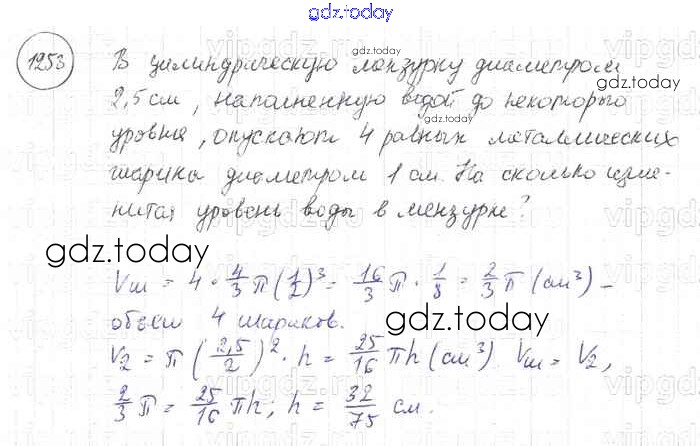 gdz.today
gdz.today
1253 В цилиндрическую мензурку диаметром
gdz.today
2,5 см, наполненную водой до некоторого
уровня, опускают 4 равных металлических
шарика диаметром 1 см. На сколько изме-
нится уровень воды в мензурке?
gdz.today
Vш = 4 · 4/3 π (1/2)³ = 16/3 π · 1/8 = 2/3 π (см³) –
объем 4 шариков.
gdz.today
V2 = π (2,5/2)² · h = 25/16 πh (см³) Vш = V2,
2/3 π = 25/16 πh; h = 32/75 см.
gdz.today